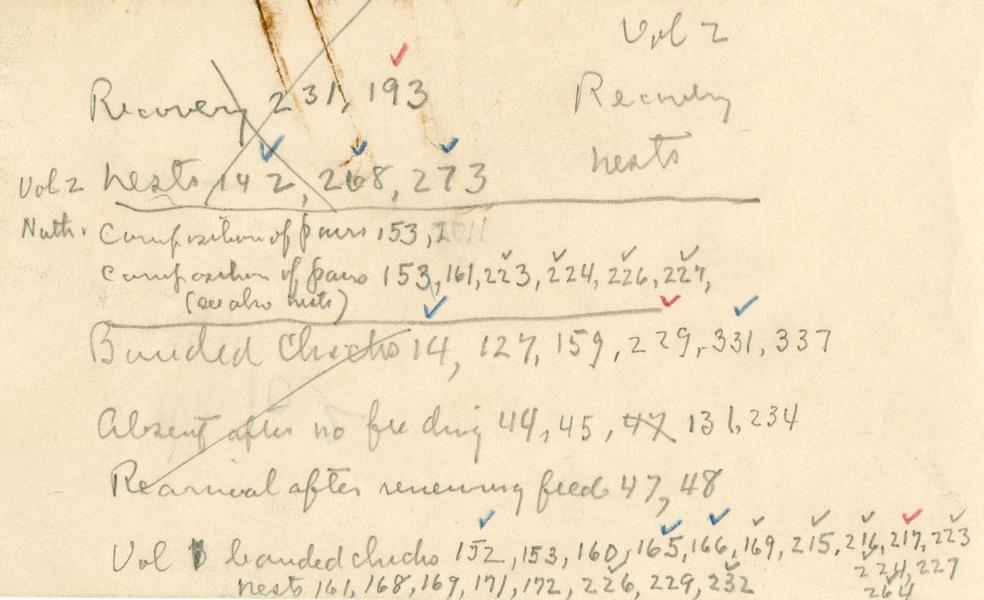 Vol 2
Recovery
nests
Recovery 231, 193
Vol 2 nests 142, 268, 273
Composition of pairs 153, 2
Composition of pairs 153, 161, 223, 224, 226, 227,
(see also nests)
Banded Chicks 14, 127, 159, 229, 331, 337
Absent after no feeding 44, 45, 47 131, 234
Rearrival after renewing feed 47, 48
Vol banded chicks 152, 153, 160, 165, 166, 169, 215, 216, 217, 223
224, 227
264
nests 161, 168, 169, 171, 172, 226, 229, 232